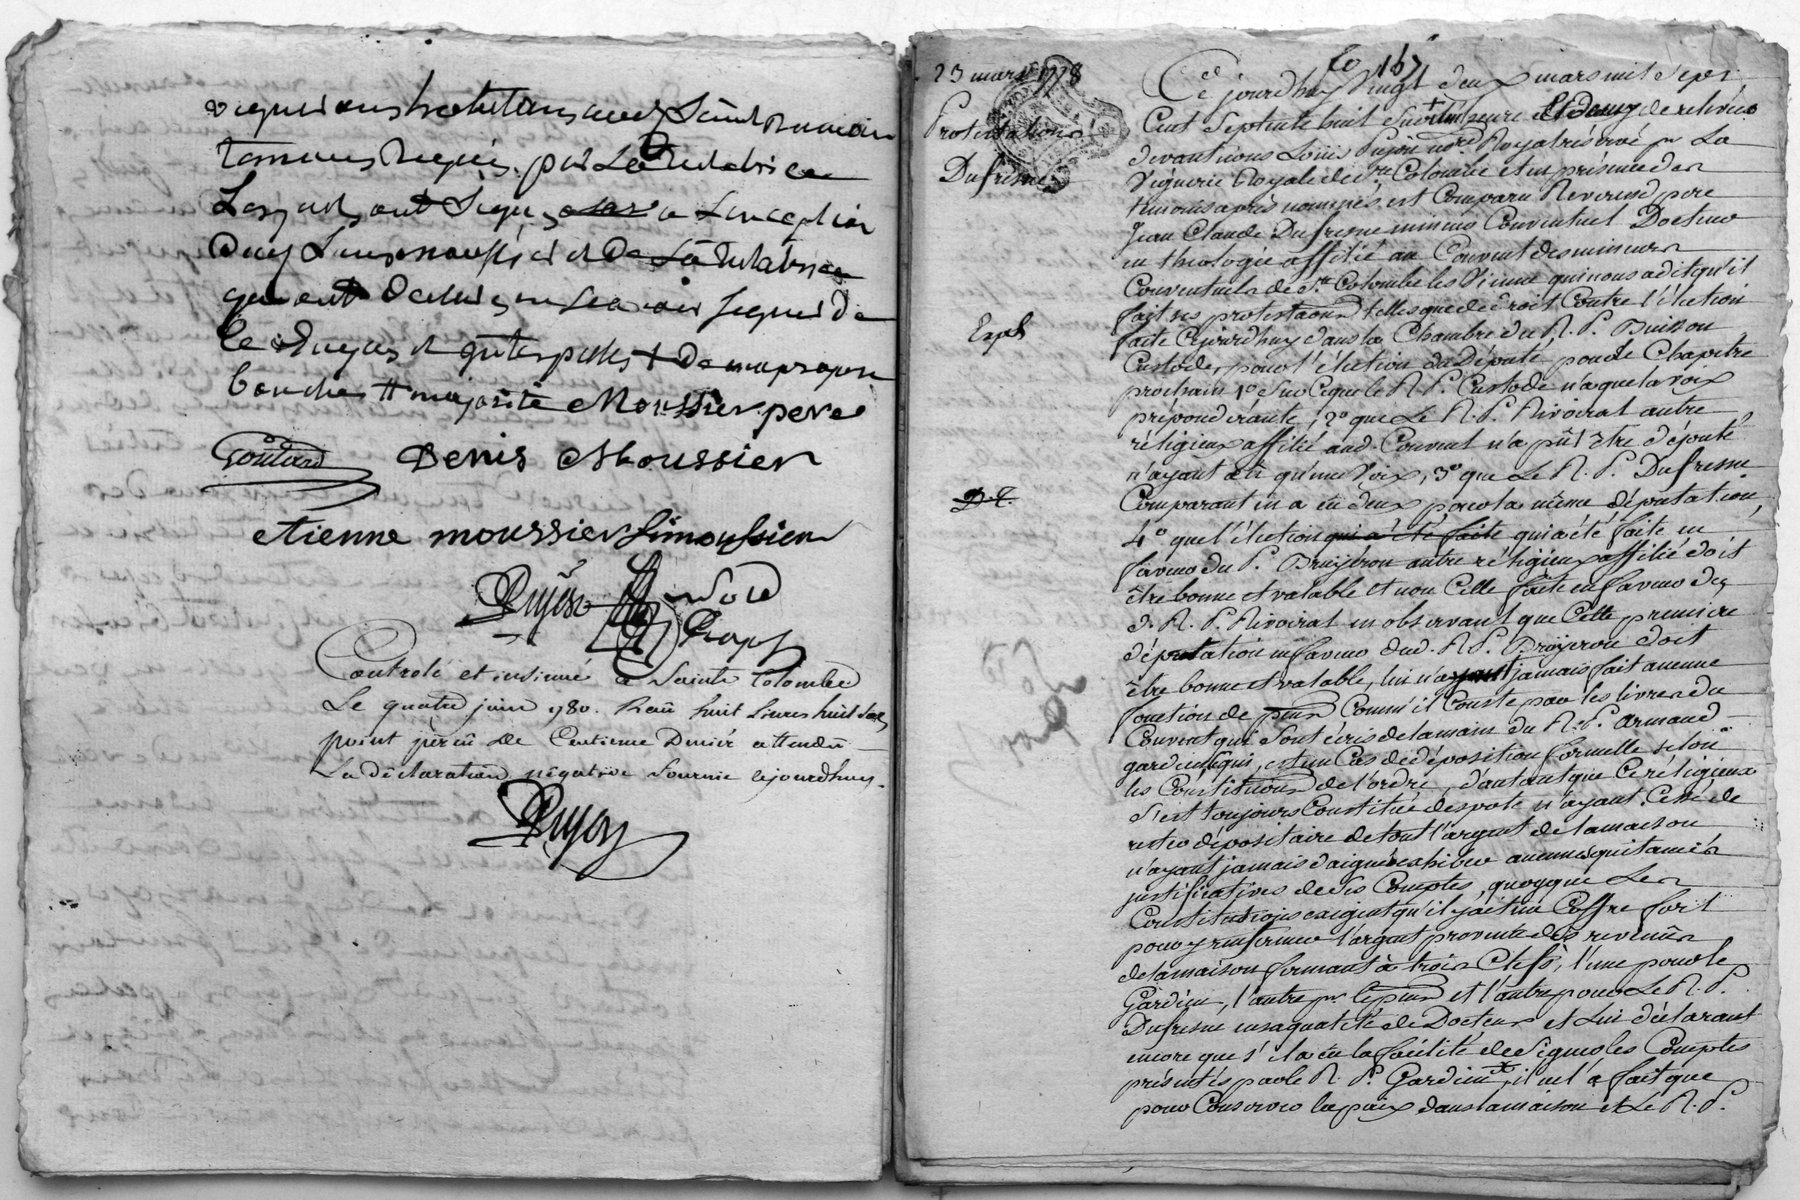 vignerons habitans aud Saint Romain
temoins requis, par La
Lesquels ont Signés a L'exception
et De La
qui ont Declaré ne scavoir signer De
Ce Enquis et interpellés + De sa propre
bouche # majorité Moussier pere
Goutard Denis Moussier
etienne moussier Simoussier
Dujon
Controlé et insinué a Sainte Colombe
Le quatre juin 1780. Reçu huit Livres huit Sols
point perçu De Centieme Denier attendu
La Déclaration négative fournie cejourdhuy.
Dujon
fo 167
23 mars 1778
Protestations
Dufresne
Expé
D. F.
Ce jourdhuy Vingt deux mars mil Sept
Cent Septante huit Sur heure et demy de relevée
devant nous Louis Dujon nore Royal réservé pr La
Viguerie Royale de Ste Colombe et en présence des
temoins après nommés est Comparu Reverend pere
Jean Claude Dufresne mineur Conventuel Docteur
en théologie affilié au Couvent des mineurs
Conventuels de Ste Colombe les Vienne qui nous a dit qu'il
fait ses protestaons telles que de droit Contre l'élection
faite Cejourdhuy dans la Chambre du R. P. Buisson
Custode, pour l'élection du Député pour le Chapitre
prochain 1o Sur Ce que le R. P. Custode n'a que la voix
prépondérante, 2o que Le R. P. Rivoirat autre
réligieux affilié aud. Couvent n'a pût être député
n'ayant eû qu'une Voix, 3o que Le R. P. Dufresne
Comparant en a eu deux pour la même députation,
4o que l'élection qui a été faite qui a été faite en
faveur du P. Bruÿeron autre réligieux affilié doit
être bonne et valable et non Celle faite en faveur du
d. R. P. Rivoirat en observant que Cette premiere
députation en faveur dud. R. P. Bruÿeron doit
être bonne et valable, lui n'ayant jamais fait aucune
fonction de Comm'il Conste par les livres du
Couvent qui Sont écris de la main du R. P. Armand
gardien, ce qui, est un Cas de déposition formelle selon
les Constitutions de l'ordre, d'autant que Ce réligieux
s'est toujours Constitué despote n'ayant Cessé de
rester dépositaire de tout l'argent de la maison
n'ayant jamais daigné exhiber aucunes quitances
justificatives de Ses Comptes, quoyque Les
Constitutions exigent qu'il y ait un Coffre fort
pour y renfermer l'argent provenu des revenus
de la maison fermant à trois Clefs, l'une pour le
Gardien, l'autre pr et l'autre pour Le R. P.
Dufresne en sa qualité de Docteur et Lui déclarant
encore que s'il a eu la facilité de Signer les Comptes
présentés par le R. P. Gardien, il ne l'a fait que
pour Conserver la paix dans la maison et Le R. P.